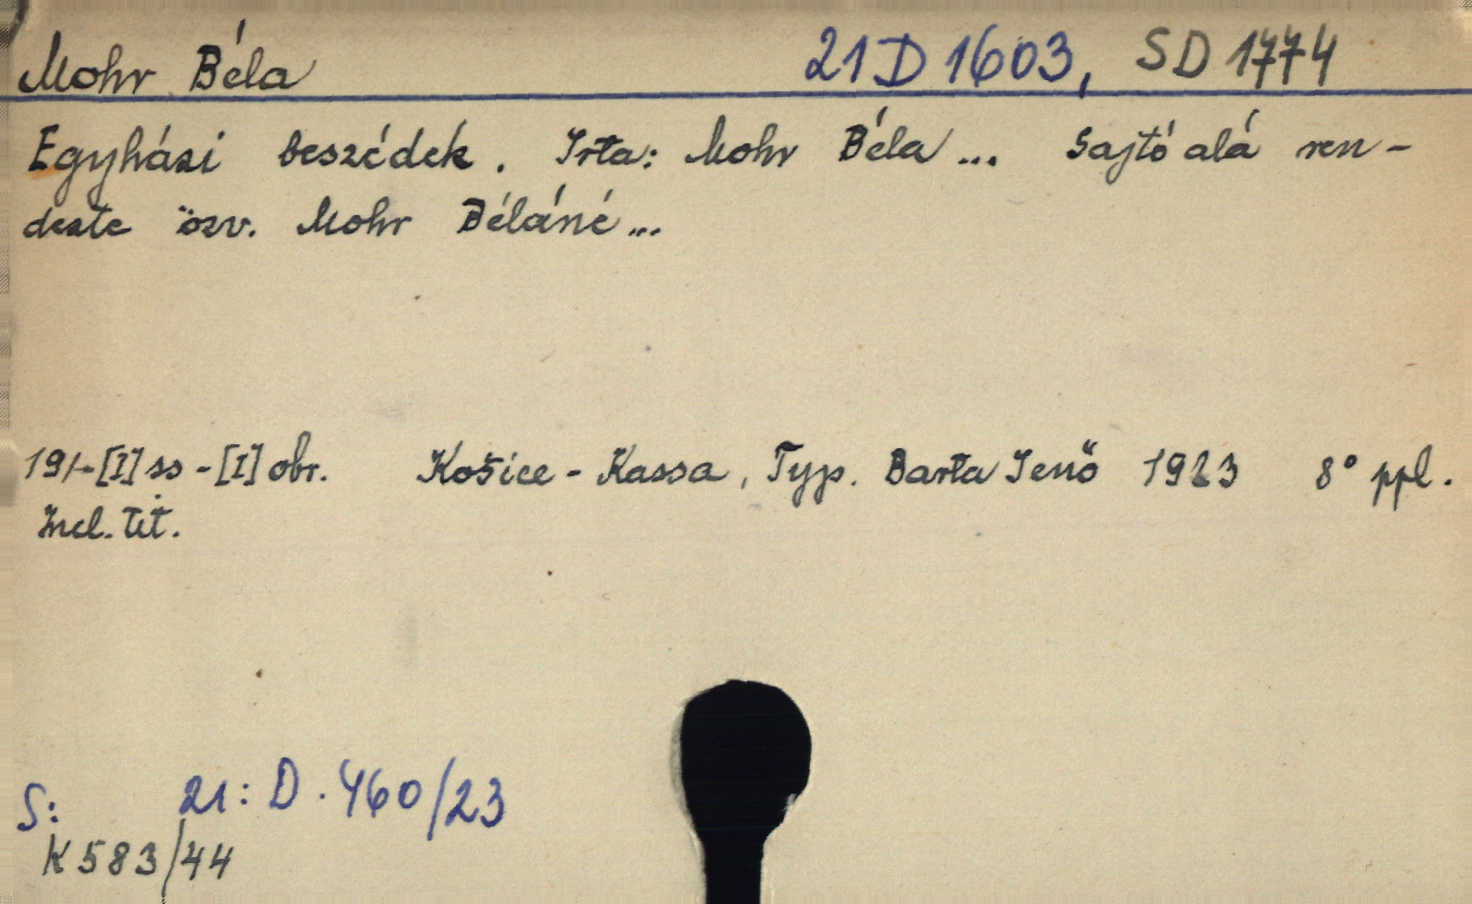 Mohr Béla 21 D 1603, SD 1774
Egyházi beszédek. Irta: Mohr Béla... Sajtó alá ren-
dezte özv. Mohr Béláné...
191-[I] ss - [I] obr. Košice - Kassa, Typ. Barta Jenő 1923 8° ppl.
Incl. tit.
S: 21: D. 460/23
K 583/44